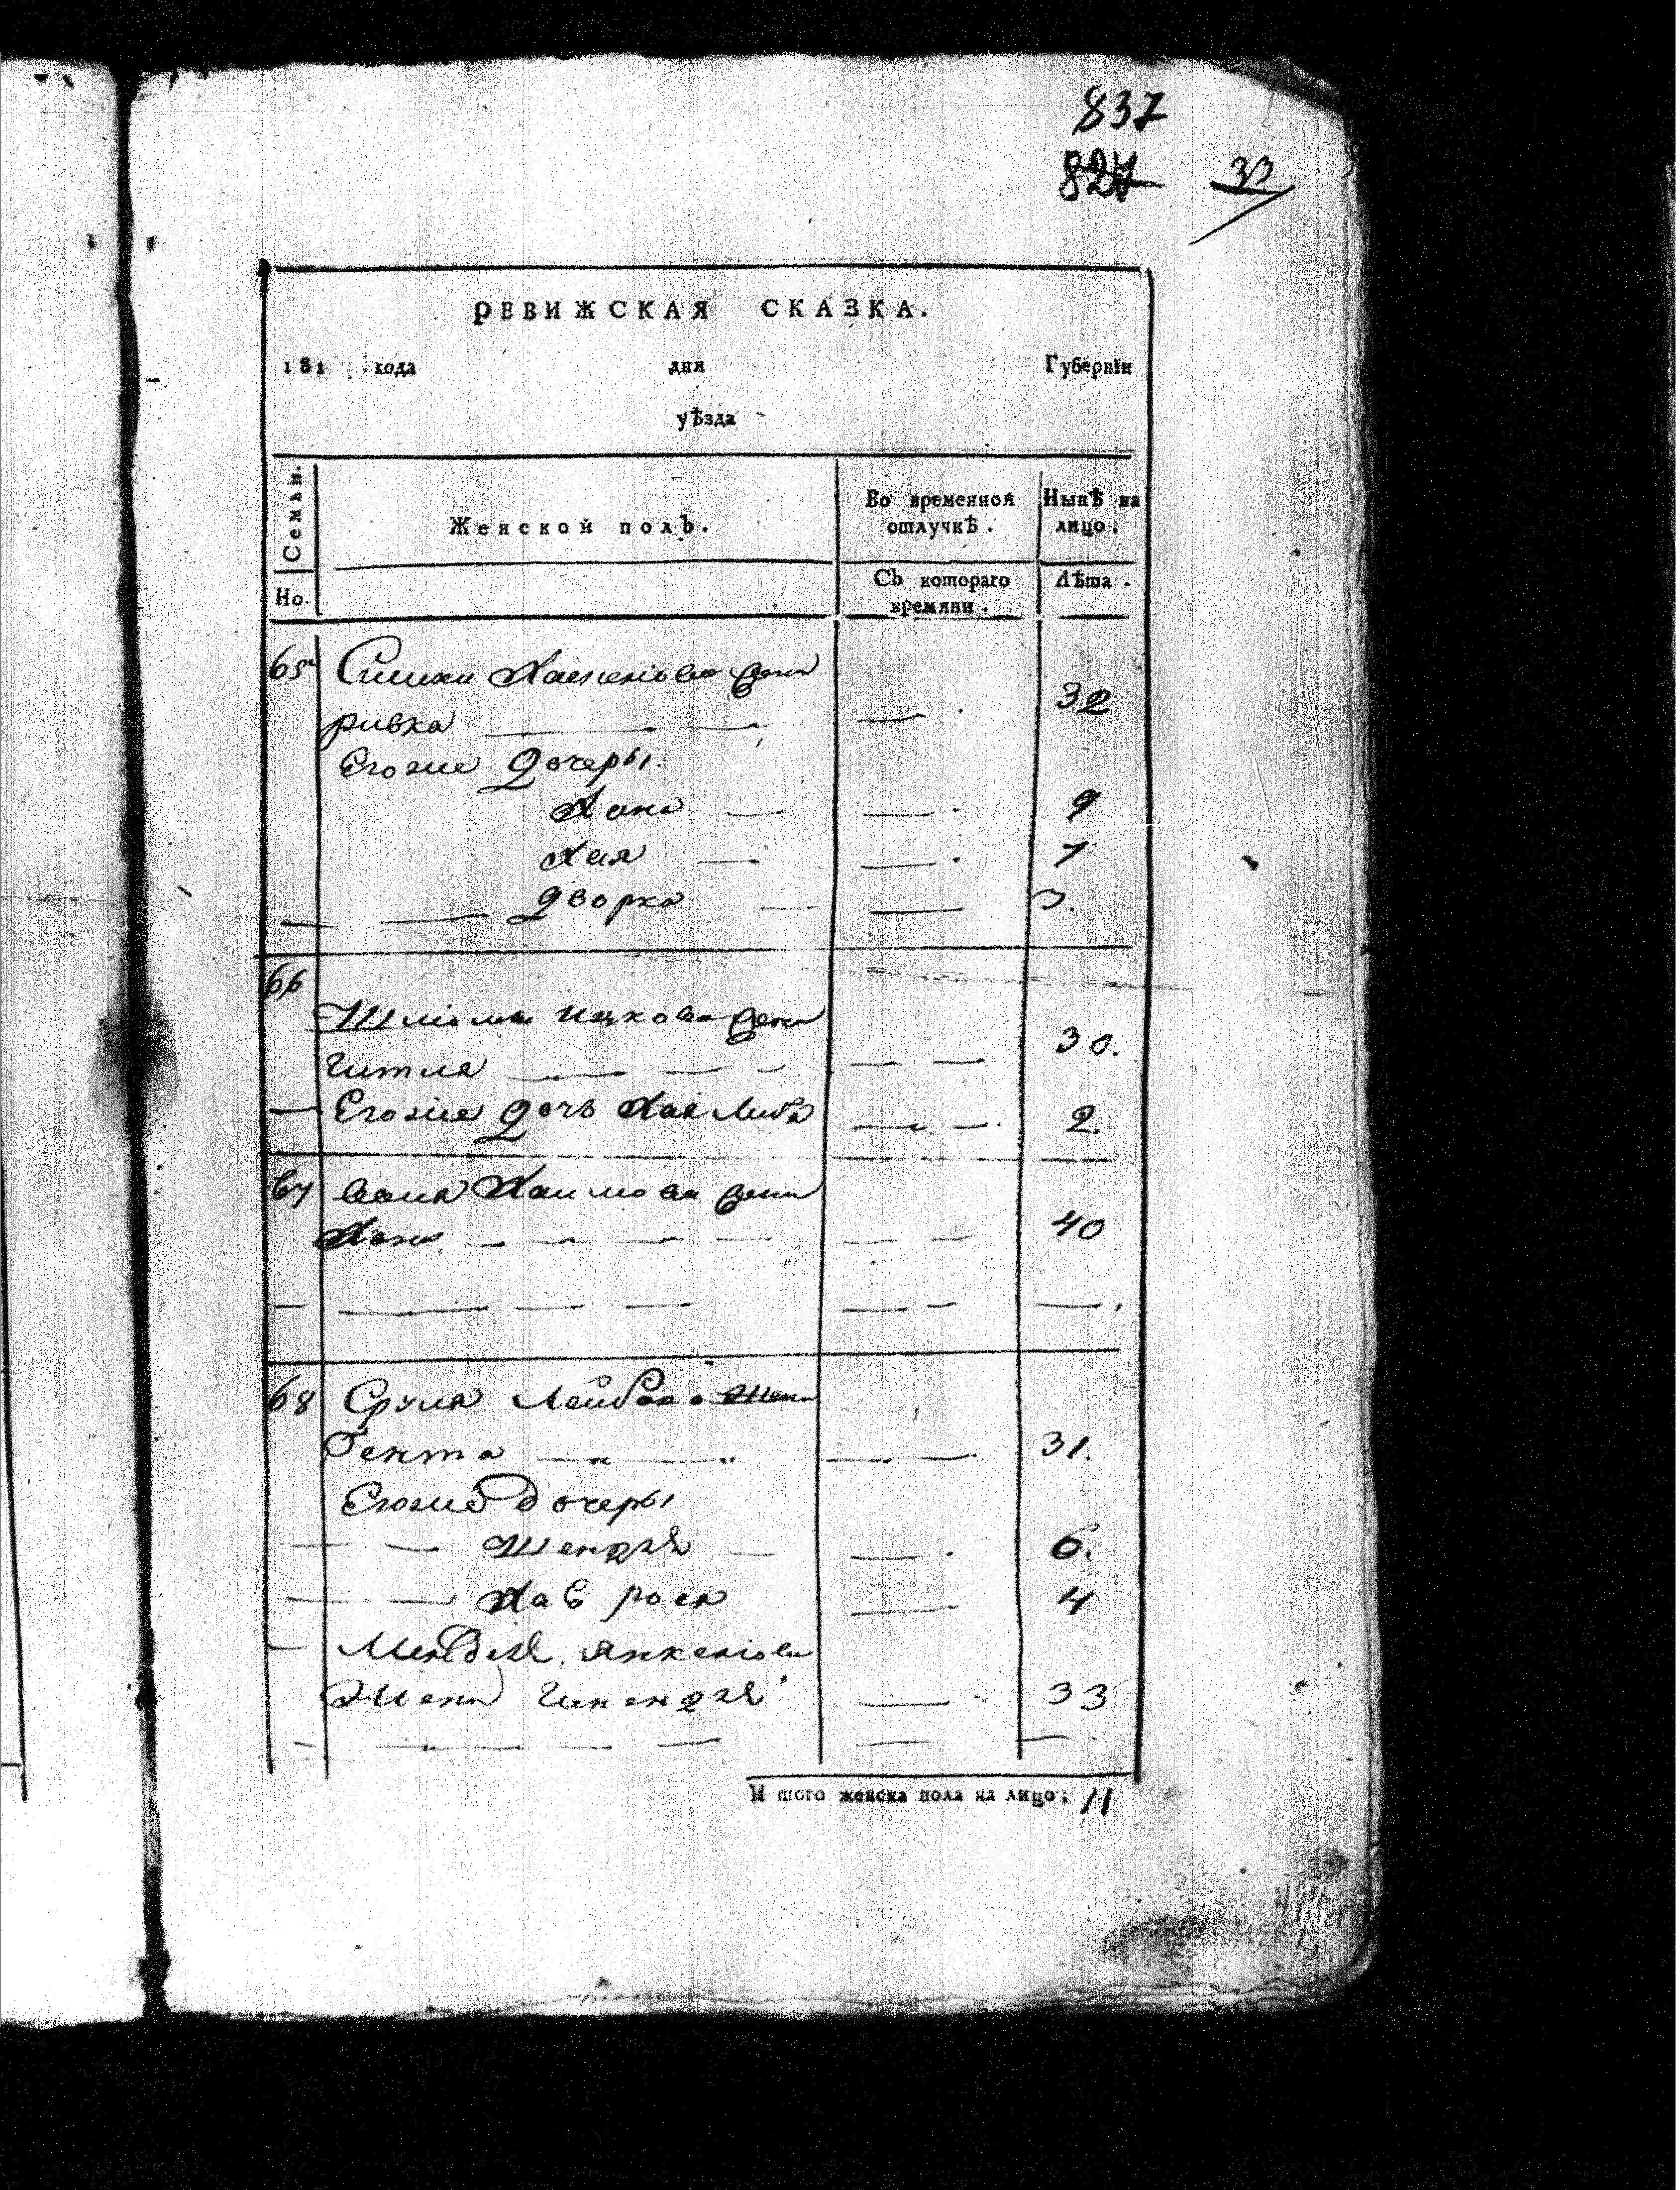 837
827
33
РЕВИЖСКАЯ СКАЗКА.
181 кода дня Губернїи
уѣзда
Семьи. Женской полъ. Во временной отлучкѣ. Нынѣ на лицо.
Но. Съ котораго времяни. Лѣта.
65 жена
ривка 32
Егоже дочеры.
Хана 9
Хая 7
дворка 3.
66
Шліомы ицкова жена
гитля 30.
Егоже дочь Хая Либа 2.
67 Хаимова жена
Хана 40
68 Сруля Лейбова жена
Гента 31.
Егоже дочеры
Шендля 6.
рося 4
Менделя Янкеліова
Жена 33
И того женска пола на лицо: 11